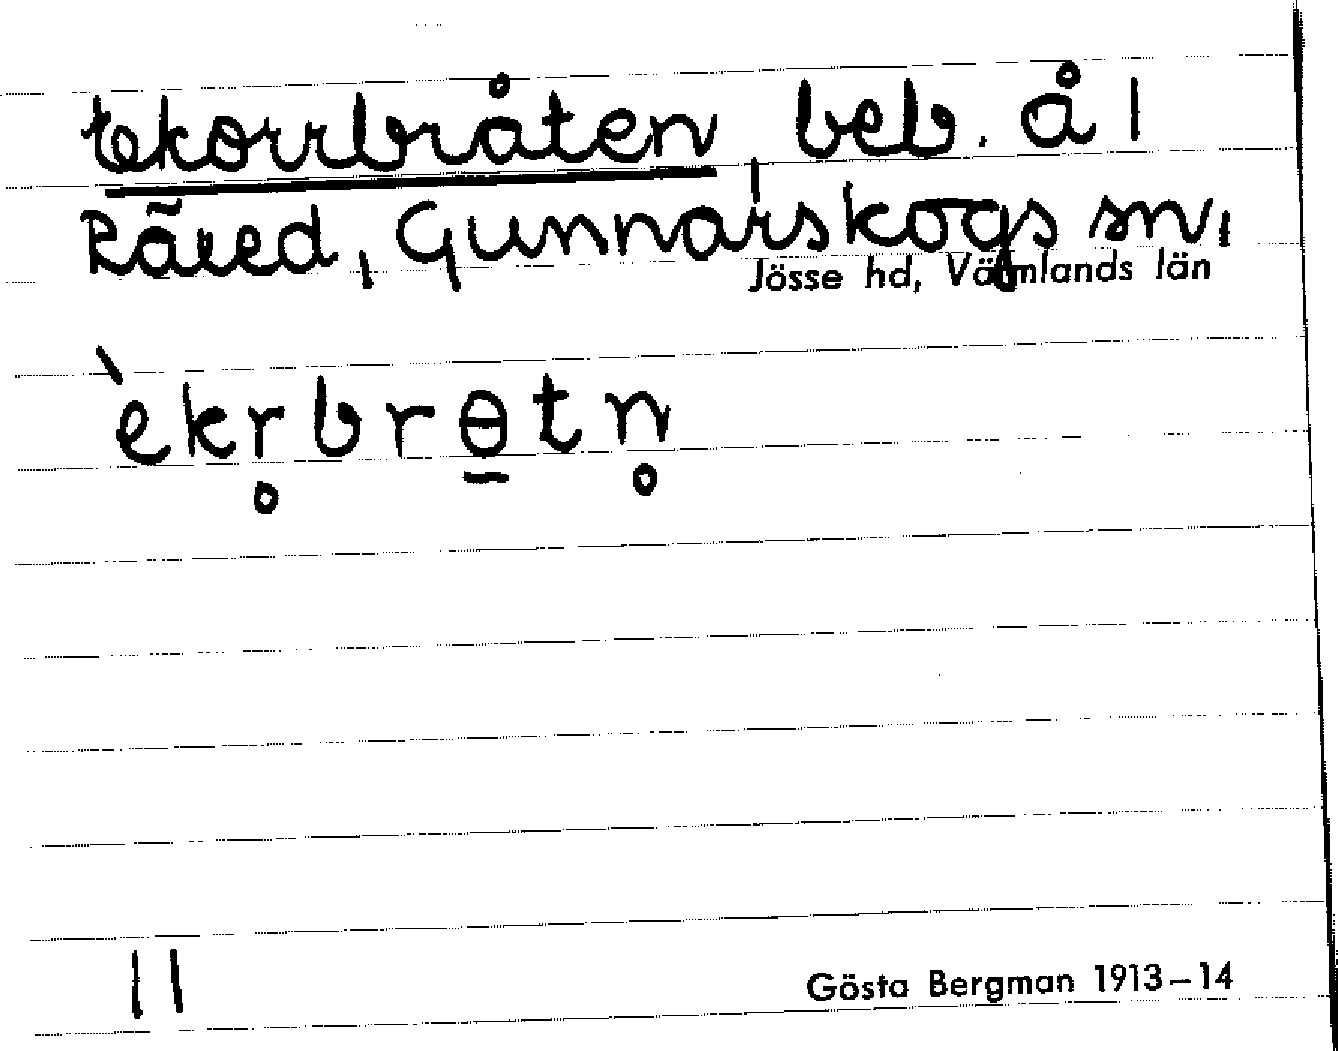 Ekorrbråten beb. å 1
Räved, Gunnarskogs sn,
Jösse hd, Värmlands län
èkr̥brɵ̠tn̥
11
Gösta Bergman 1913–14